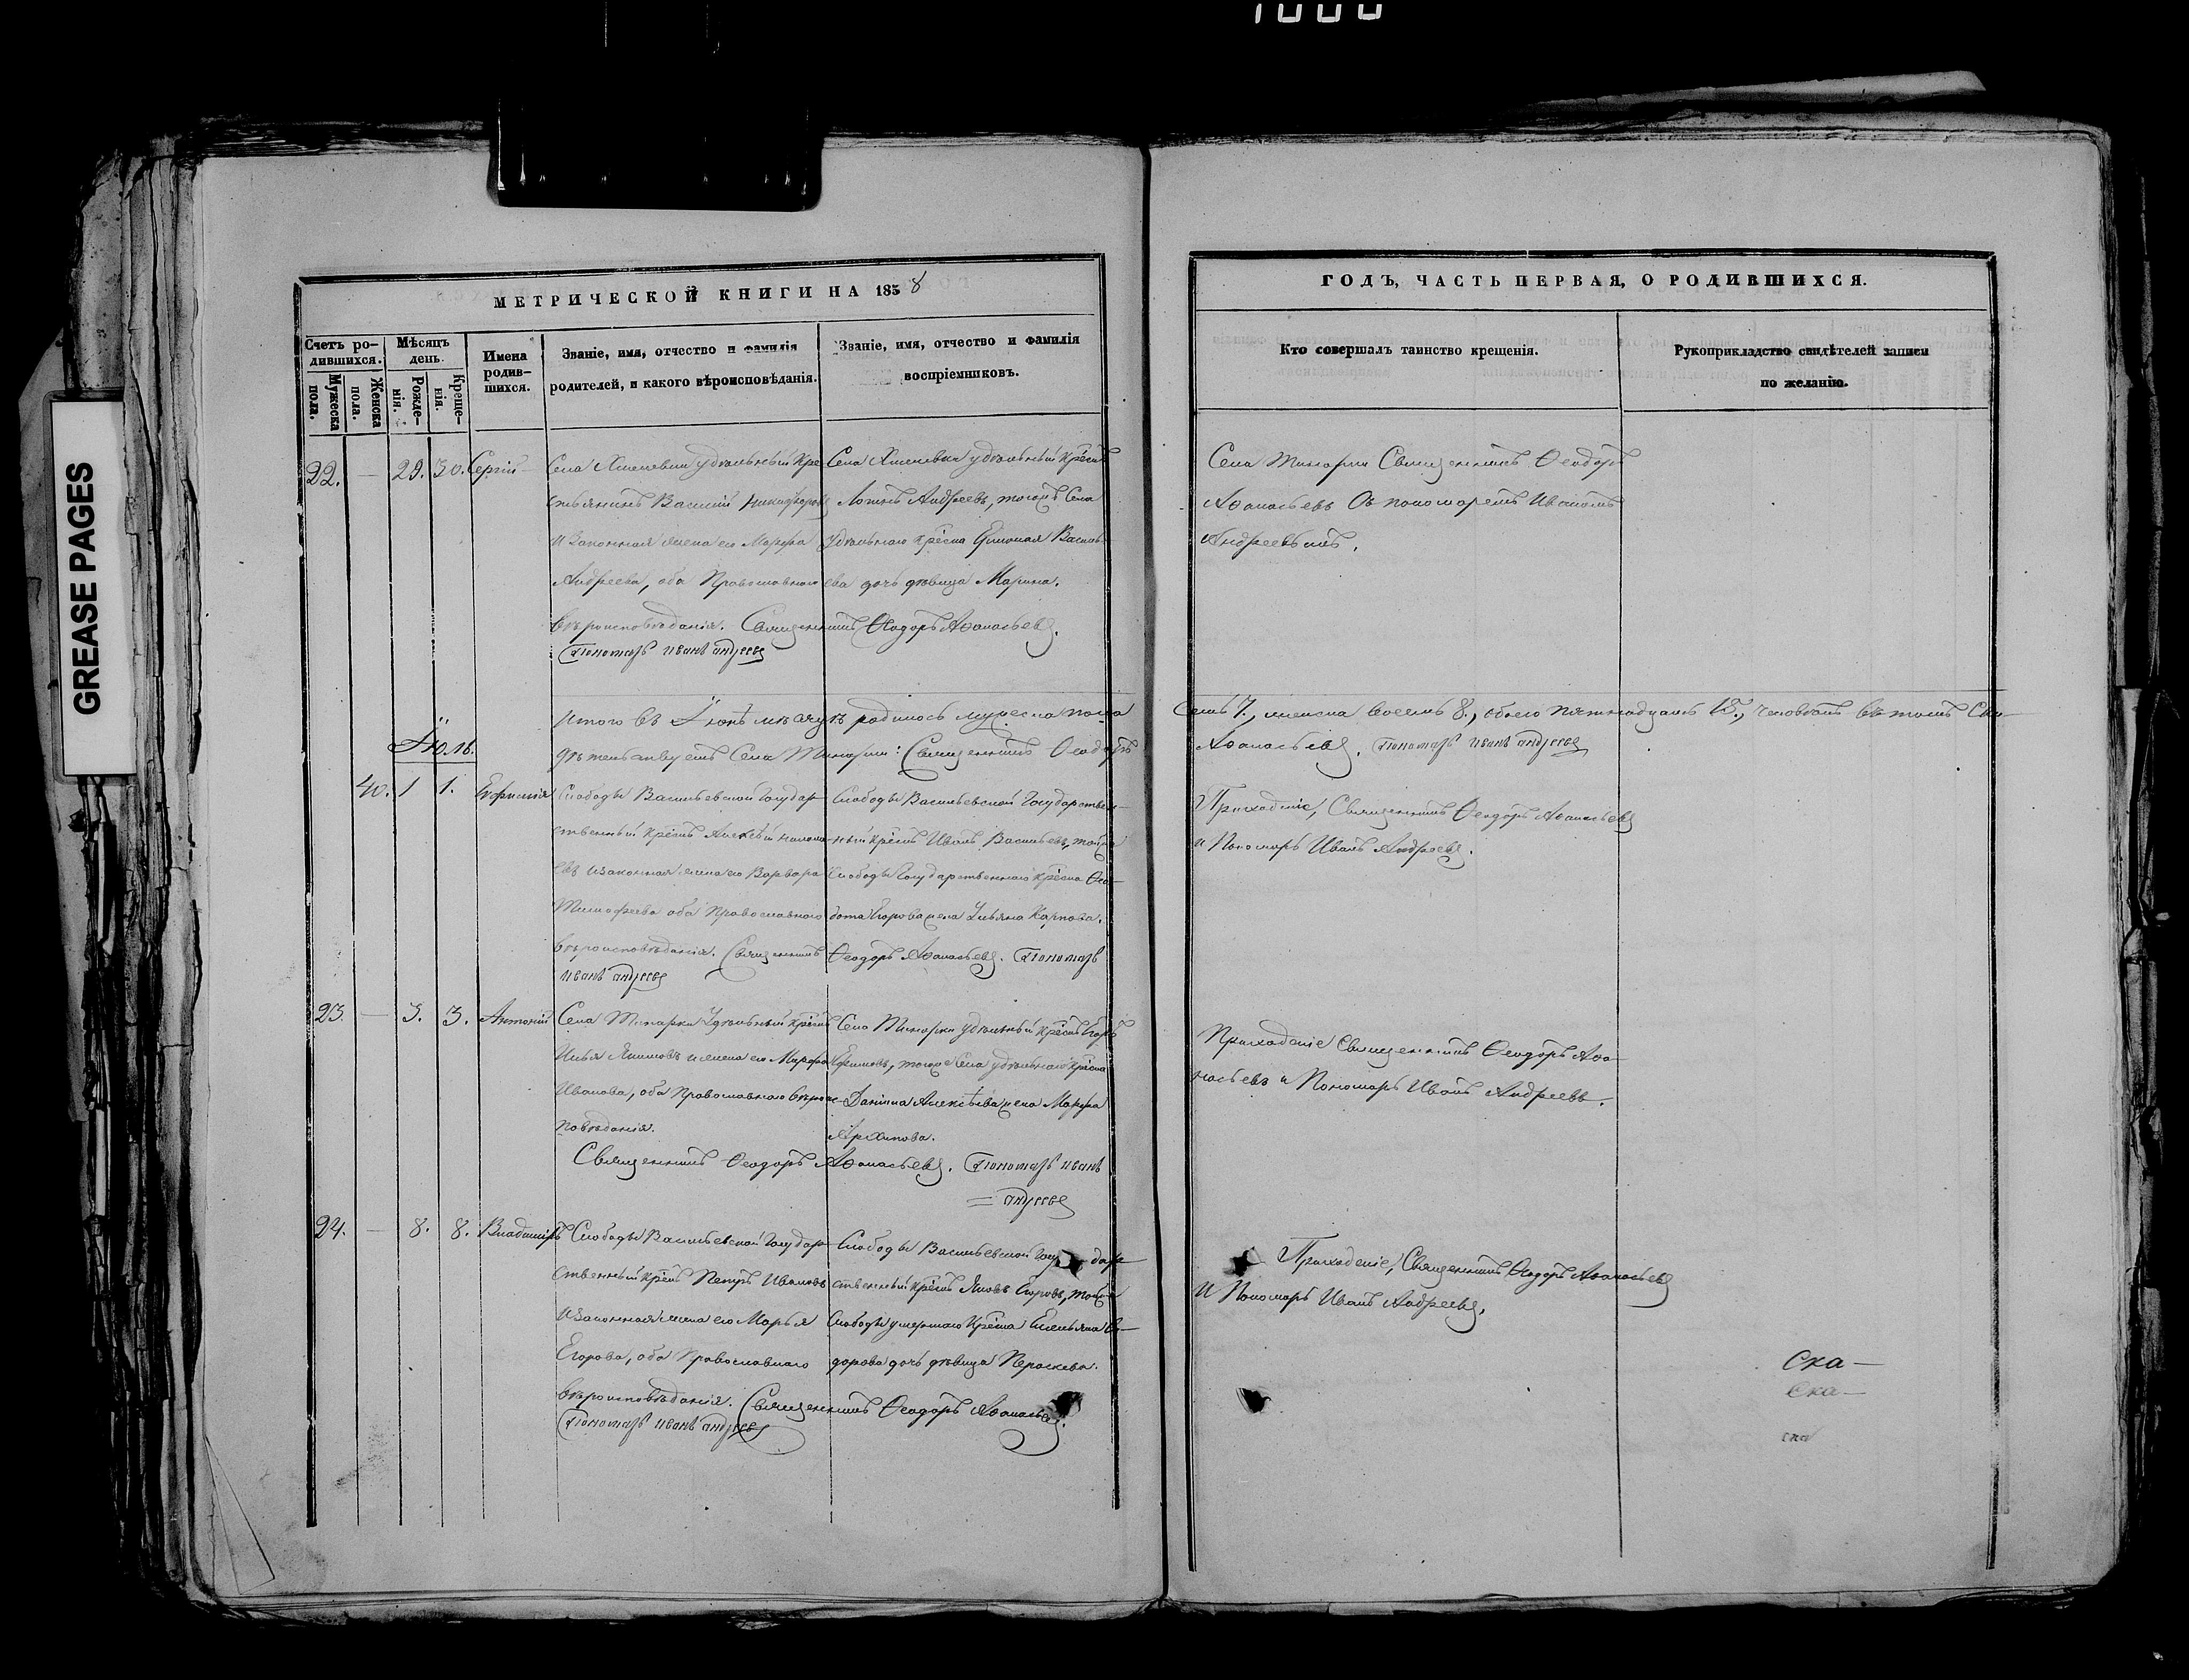 GREASE PAGES
МЕТРИЧЕСКОЙ КНИГИ НА 1858
Счетъ ро-
дившихся.
Мужеска
пола.
Женска
пола.
Мѣсяцъ
день.
Рожде-
нія.
Креще-
нія.
Имена
родив-
шихся.
Званіе, имя, отчество и фамилія
родителей, и какого вѣроисповѣданія.
Званіе, имя, отчество и фамилія
воспріемниковъ.
22. — 29. 30. Сергій
Села удѣльный Кре-
стьянинъ Василій Никифоровъ
и законная жена его Марѳа
Андреева, оба Православнаго
вѣроисповѣданія. Священникъ Ѳеодоръ Аѳанасьевъ.
Пономарь Иванъ Андреевъ
Села удѣльный Крест.
Андреевъ, тогожъ Села
удѣльнаго крес-на Василь-
ева дочь дѣвица Марина.
Итого въ Іюнѣ мѣсяцѣ родилось мужеска пола
дѣтельствуетъ Села : Священникъ Ѳеодоръ
Іюль.
40. 1 1.
Слободы Васильевской Государ-
ственный крест. Алексѣй
и законная жена его Варвара
Тимофеева оба Православнаго
вѣроисповѣданія. Священникъ Ѳеодоръ Аѳанасьевъ. Пономарь
Иванъ Андреевъ
Слободы Васильевской Государствен-
ный крест. Иванъ Васильевъ, тойже
Слободы Государственнаго крес-на Ѳео-
дота Егорова жена Ульяна Карпова.
23. — 3. 3. Антоній
Села удѣльный крест.
Илья и жена его Марѳа
Иванова, оба Православнаго вѣроис-
повѣданія.
Села удѣльный крест. Егоръ
Ефимовъ, тогоже Села удѣльнаго крес-на
Даніила Алексѣева жена Марѳа
Архипова.
Священникъ Ѳеодоръ Аѳанасьевъ. Пономарь Иванъ
= Андреевъ
24. — 8. 8. Владиміръ
Слободы Васильевской Государ-
ственный крест. Петръ Ивановъ
и законная жена его Марья
Егорова, оба Православнаго
вѣроисповѣданія. Священникъ Ѳеодоръ Аѳанасьевъ.
Пономарь Иванъ Андреевъ
Слободы Васильевской Государ-
ственный крест. Яковъ Егоровъ, тойже
Слободы умершаго крес-на Емельяна Ѳе-
дорова дочь дѣвица Параскева.
ГОДЪ, ЧАСТЬ ПЕРВАЯ, О РОДИВШИХСЯ.
Кто совершалъ таинство крещенія.
Рукоприкладство свидѣтелей записи
по желанію.
Села Священникъ Ѳеодоръ
Аѳанасьевъ Съ пономаремъ Иваномъ
Андреевымъ.
семь 7., женска восемь 8., обоего пятнадцать 15., человѣкъ въ томъ Сви-
Аѳанасьевъ. Пономарь Иванъ Андреевъ
Приходскіе, Священникъ Ѳеодоръ Аѳанасьевъ
и Пономарь Иванъ Андреевъ.
Приходскіе Священникъ Ѳеодоръ Аѳа-
насьевъ и Пономарь Иванъ Андреевъ.
Приходскіе, Священникъ Ѳеодоръ Аѳанасьевъ
и Пономарь Иванъ Андреевъ.
Ска—
Ска—
ска